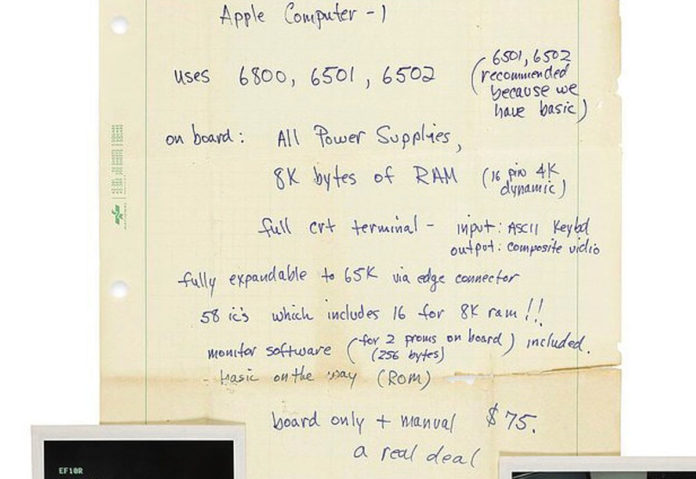 Apple Computer-1
uses 6800, 6501, 6502 (6501, 6502
recommended
because we
have basic)
on board: All Power Supplies,
8K bytes of RAM (16 pin 4K
dynamic)
full crt terminal - input: ASCII Keybd
output: composite vidio
fully expandable to 65K via edge connector
58 ic's which includes 16 for 8K ram!!
monitor software (for 2 proms on board) included.
(256 bytes)
- basic on the way (ROM)
board only + manual $75.
a real deal
EF10R